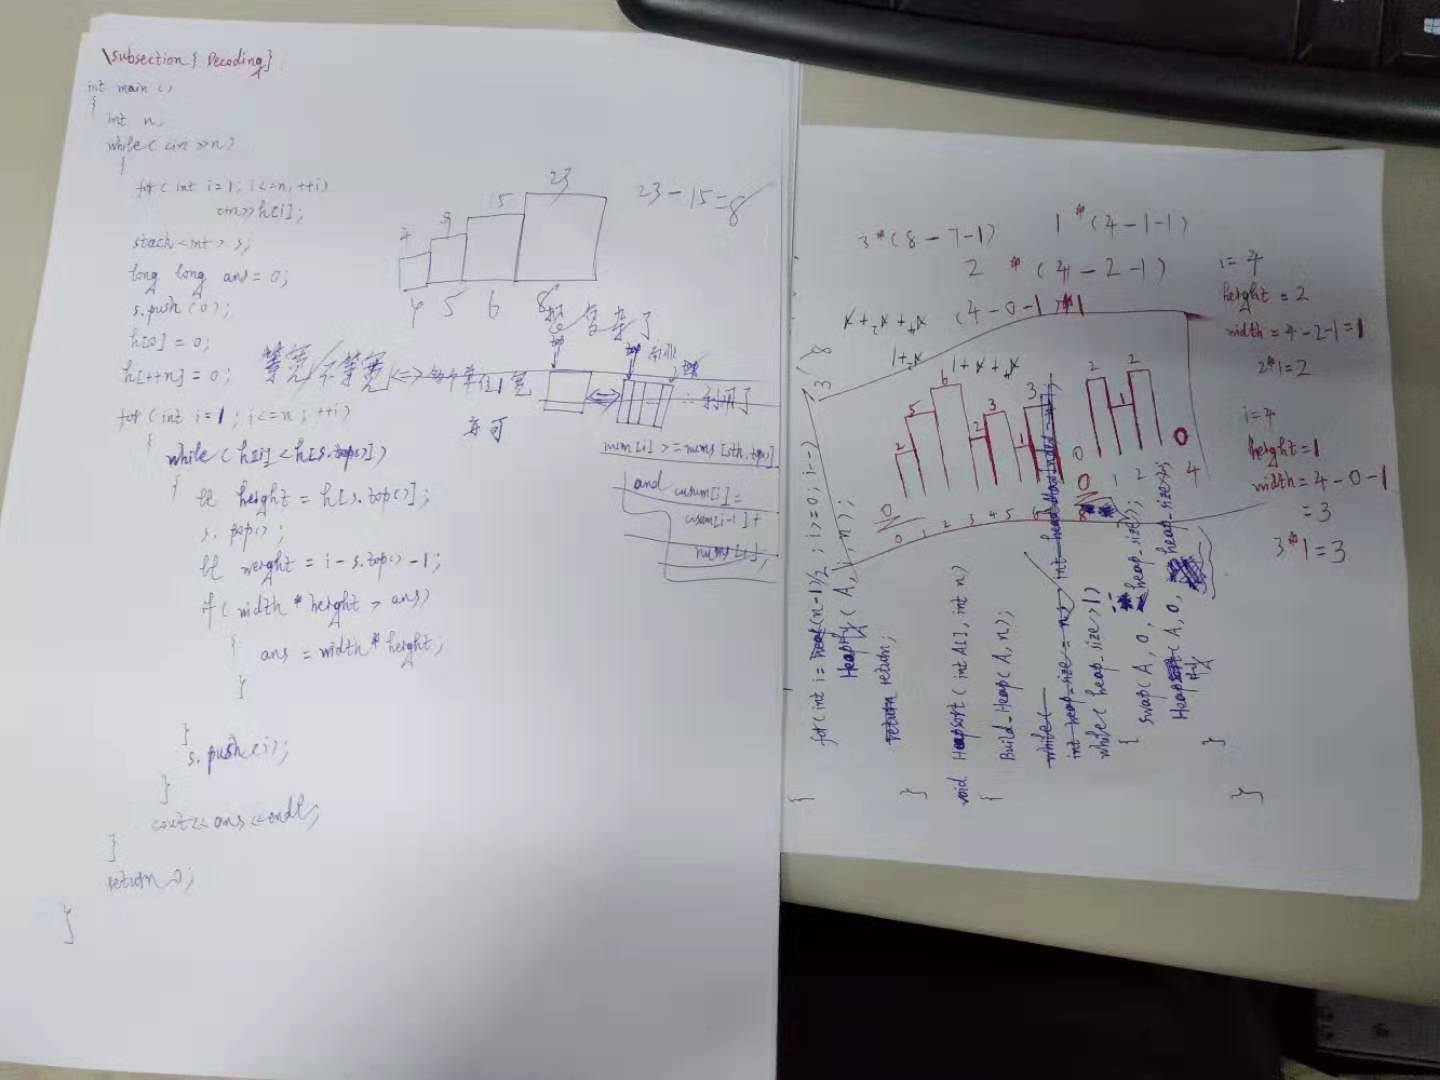 \subsection{Decoding}
int main ()
{
int n;
while(cin>>n)
{
for(int i=1; i<=n; ++i)
cin>>h[i];
stack<int> s;
long long ans=0;
s.push(0);
h[0]=0;
h[++n]=0;
for(int i=1; i<=n; ++i)
{
while(h[i]<h[s.top()])
{
ll height = h[s.top()];
s.pop();
ll weight = i-s.top()-1;
if(width*height > ans)
{
ans = width*height;
}
}
s.push(i);
}
cout<<ans<<endl;
}
return 0;
}
4 9 15 23
23-15=8
4 5 6 8
复杂了
等宽/不等宽<=>每个单位1宽
亦可
利用了
nums[i]>=nums[sth.top()]
and
cusum[i]=
cusum[i-1]+
nums[i];
3*(8-7-1)
1*(4-1-1)
2*(4-2-1)
(4-0-1)*1
3 8
0 2 5 6 2 3 1 3
0 1 2 3 4 5 6
0 2 1 2 0
0 1 2 4
i=4
height=2
width=4-2-1=1
2*1=2
i=4
height=1
width=4-0-1
=3
3*1=3
{
for(int i=(n-1)/2; i>=0; i--)
Heapify(A, i, n);
return;
}
void Heapsort(int A[], int n)
{
Build_Heap(A, n);
while(
int heap_size = n;
while(heap_size>1)
{
swap(A, 0, heap_size);
Heap(A, 0, heap_size);
}
}